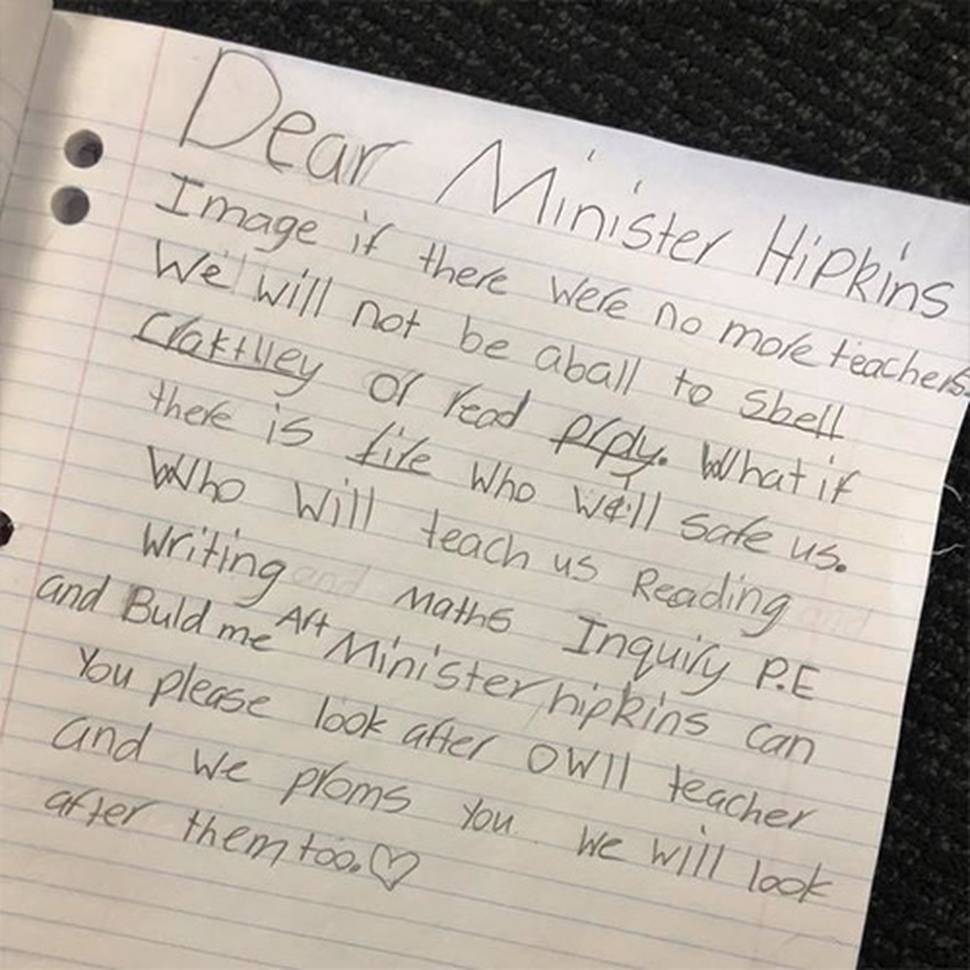 Dear Minister Hipkins
Image if there were no more teachers.
We will not be aball to sbell
craktlley or read prply. What if
there is fire who will safe us.
Who will teach us Reading and
writing and maths Inquiry P.E
and Buld me Art Minister hipkins can
You please look after OWll teacher
and we proms you we will look
after them too.♡